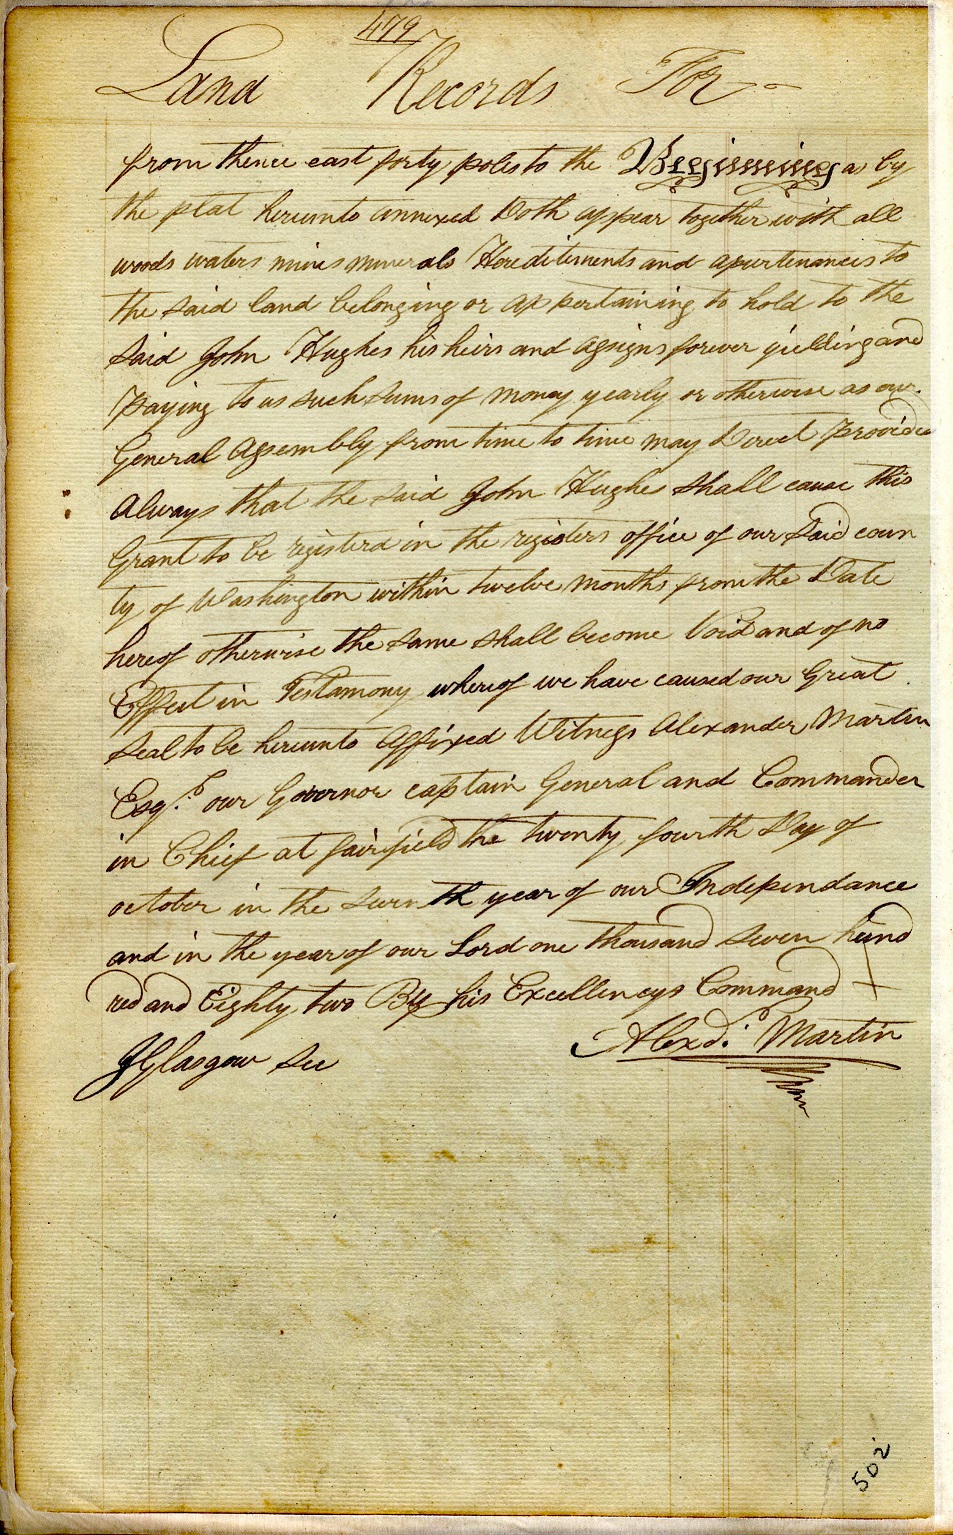 479
Land Records For
from thence east forty poles to the Beginning as by
the plat hereunto annexed Doth appear together with all
woods waters mines minerals Hereditiments and apurtenances to
the said land belonging or appertaining to hold to the
said John Hughes his heirs and assigns forever yielding and
Paying to us such sums of money yearly or otherwise as our
General Assembly from time to time may Direct Provided
Always that the said John Hughes shall cause this
Grant to be registerd in the registers office of our said coun
ty of Washington within twelve months from the Date
hereof otherwise the same shall become Void and of no
Effect in Testamony whereof we have caused our Great
Seal to be hereunto Affixed Witness Alexander Martin
Esqr. our Governor captain General and Commander
in Chief at fairfield the twenty fourth Day of
october in the seventh year of our Independance
and in the year of our Lord one thousand seven hund
red and Eighty two By his Excellencys Command
Alexdr. Martin
J Glasgow Sec
502